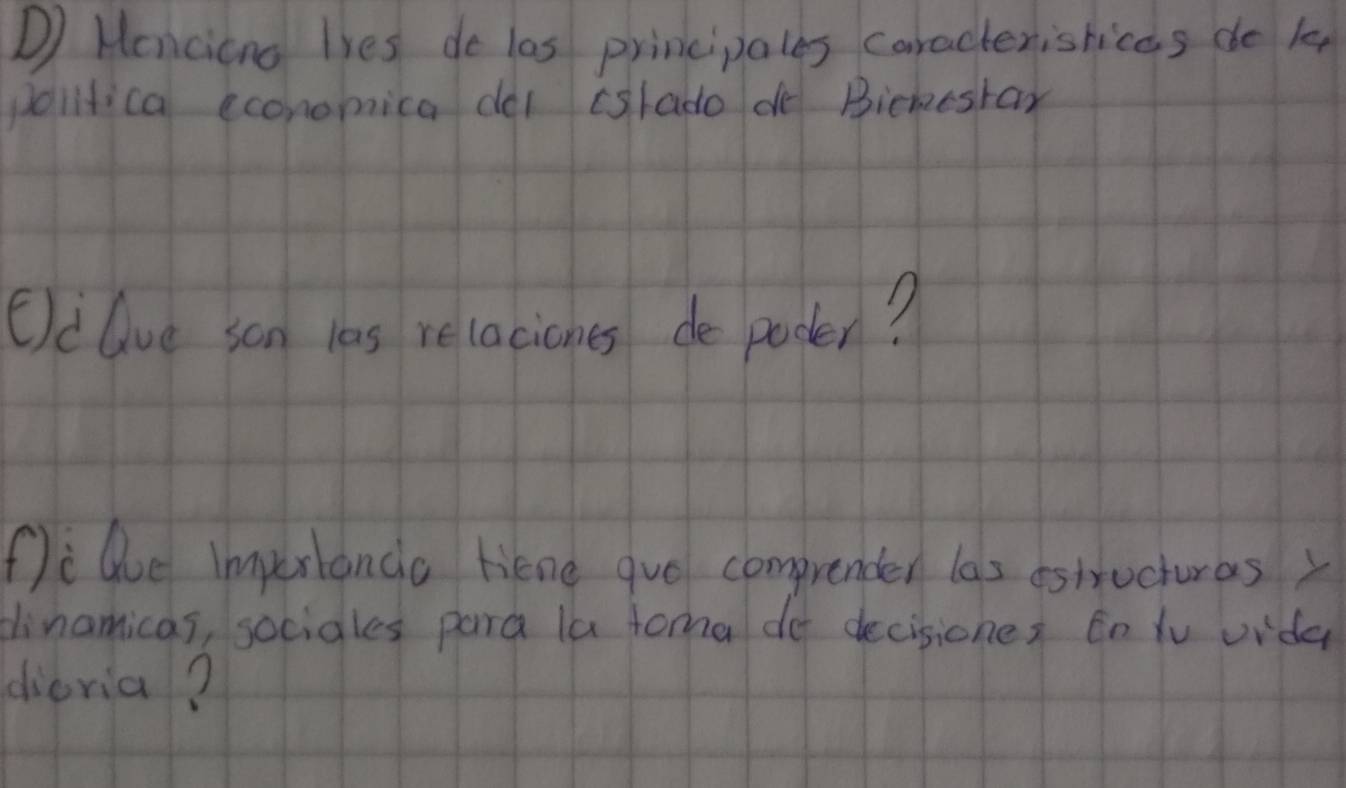 D) Menciona tres de las principales caracteristicas de la
politica economica del estado de Bienestar
E) ¿Que son las relaciones de poder?
f) ¿Que importancia tiene que comprender las estructuras y
dinamicas, sociales para la toma de decisiones En tu vida
diaria?